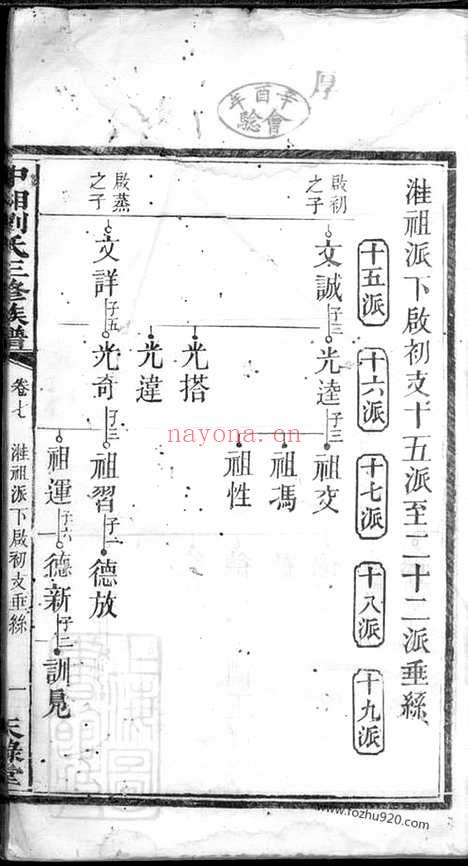 辛酉年
會驗
淮祖派下啟初支十五派至二十二派垂絲
十五派
十六派
十七派
十八派
十九派
啟初之子
文誠 子三
光逵 子三
祖交
祖馮
祖性
光搭
光達
啟蒸之子
文詳 子五
光奇 子三
祖習 子一
德放
祖運 子六
德新 子二
訓見
中湘劉氏三修族譜
卷七
淮祖派下啟初支垂絲
一
天祿堂
nayona.cn
www.fozhu920.com